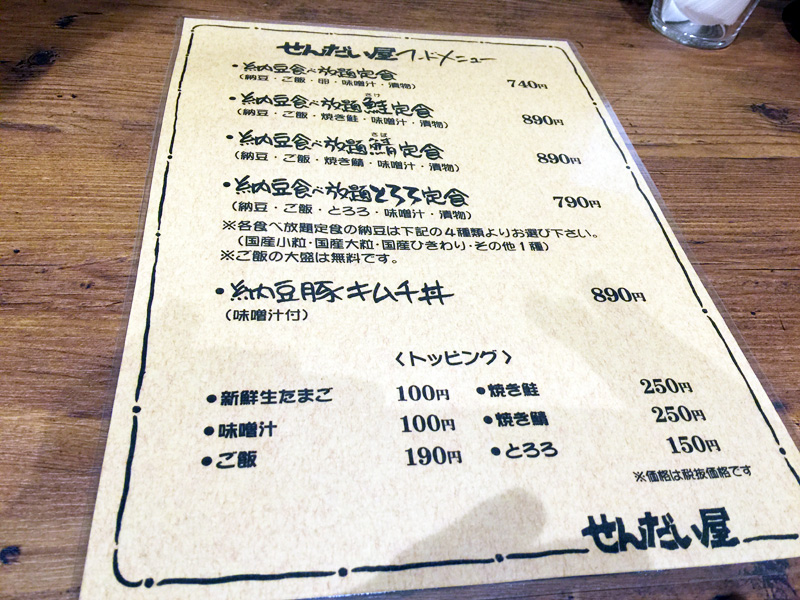 せんだい屋フードメニュー
・納豆食べ放題定食 740円
（納豆・ご飯・卵・味噌汁・漬物）
・納豆食べ放題鮭定食 890円
さけ
（納豆・ご飯・焼き鮭・味噌汁・漬物）
・納豆食べ放題鯖定食 890円
さば
（納豆・ご飯・焼き鯖・味噌汁・漬物）
・納豆食べ放題とろろ定食 790円
（納豆・ご飯・とろろ・味噌汁・漬物）
※各食べ放題定食の納豆は下記の４種類よりお選び下さい。
（国産小粒・国産大粒・国産ひきわり・その他１種）
※ご飯の大盛は無料です。
・納豆豚キムチ丼 890円
（味噌汁付）
〈トッピング〉
●新鮮生たまご 100円 ●焼き鮭 250円
●味噌汁 100円 ●焼き鯖 250円
●ご飯 190円 ●とろろ 150円
※価格は税抜価格です
せんだい屋